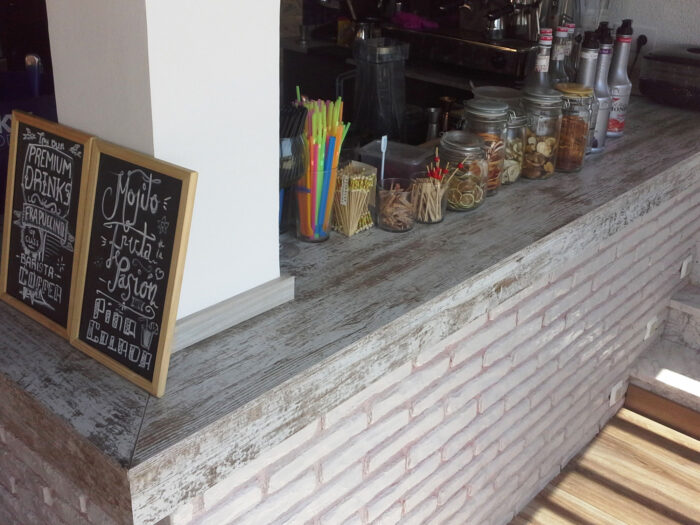 PREMIUM
DRINKS
FRAPUCCINO
BARISTA
COFFEE
Mojito
Fruta
de la
Pasion
PIÑA
COLADA